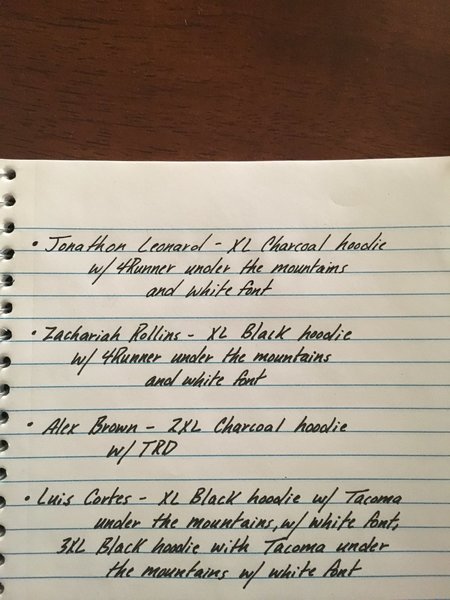 • Jonathon Leonard - XL Charcoal hoodie
w/ 4Runner under the mountains
and white font
• Zachariah Rollins - XL Black hoodie
w/ 4Runner under the mountains
and white font
• Alex Brown - 2XL Charcoal hoodie
w/ TRD
• Luis Cortes - XL Black hoodie w/ Tacoma
under the mountains, w/ white font,
3XL Black hoodie with Tacoma under
the mountains w/ white font